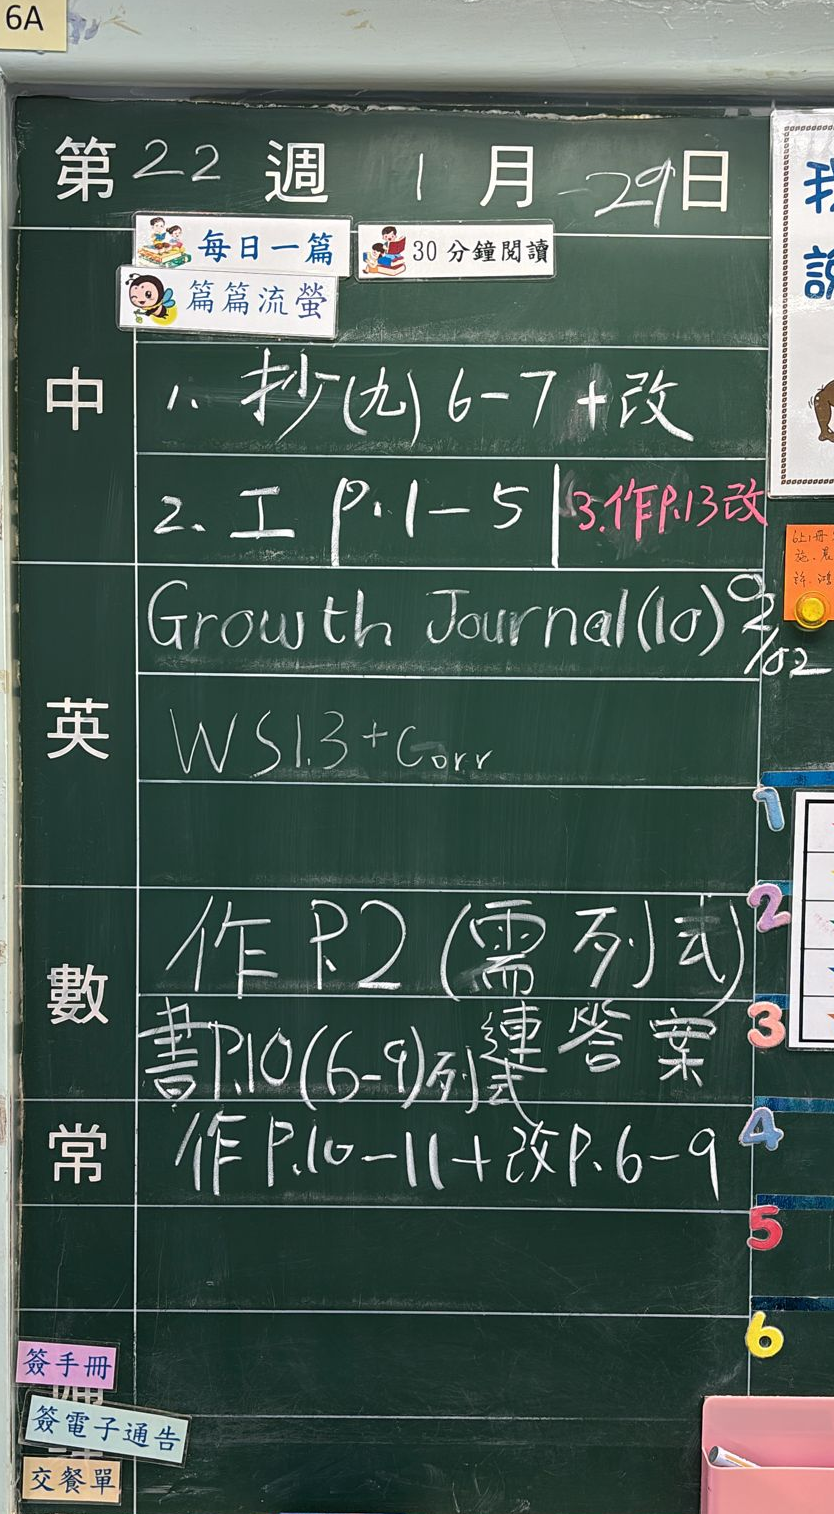 6A
第 22 週 1 月 29 日
每日一篇
30 分鐘閱讀
篇篇流螢
中
1. 抄(九) 6-7 + 改
2. 工 P.1-5 | 3.作P.13改
英
Growth Journal(10)
WS1.3 + Corr
數
作 P.2 (需列式)
書P.10(6-9)列式連答案
常
作 P.10-11 + 改P.6-9
簽手冊
簽電子通告
交餐單
1
2
3
4
5
6